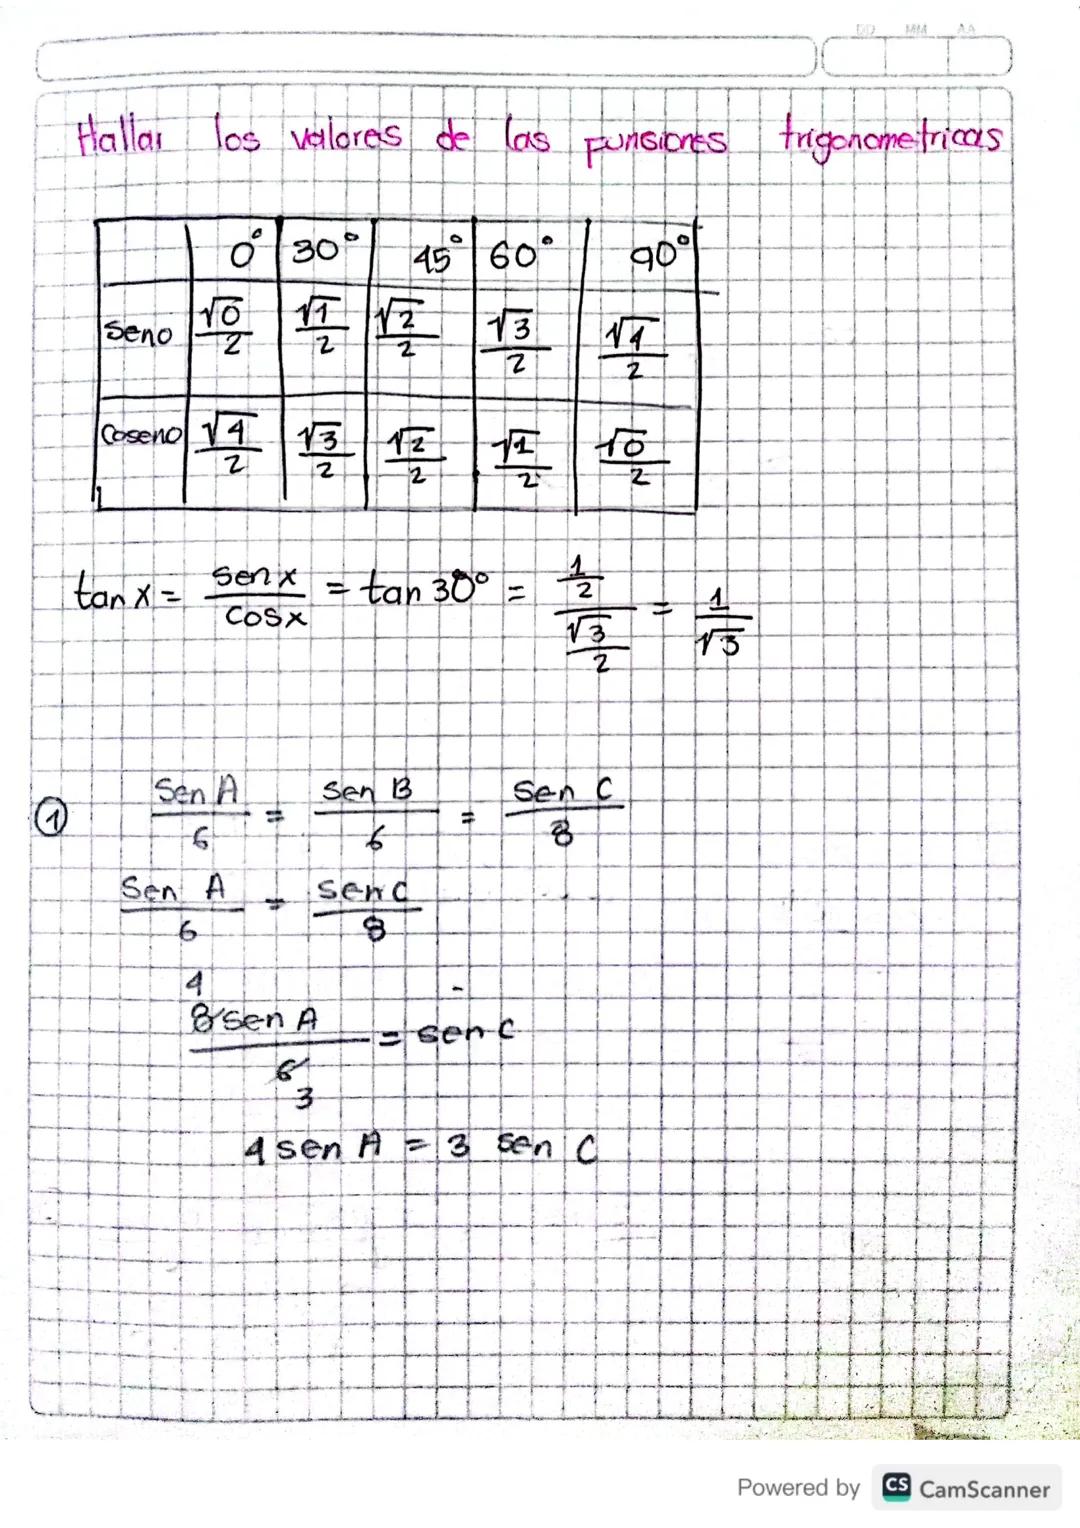 DD MM AA
Hallar los valores de las funsiones trigonometricas
0° 30° 45° 60° 90°
Seno √0/2 √1/2 √2/2 √3/2 √4/2
Coseno √4/2 √3/2 √2/2 √1/2 √0/2
tan x = sen x/cos x = tan 30° = 1/2/√3/2 = 1/√3
① Sen A/6 = Sen B/6 = Sen C/8
Sen A/6 = sen C/8
4
8 sen A/6 = sen C
3
4 sen A = 3 sen C
Powered by CS CamScanner